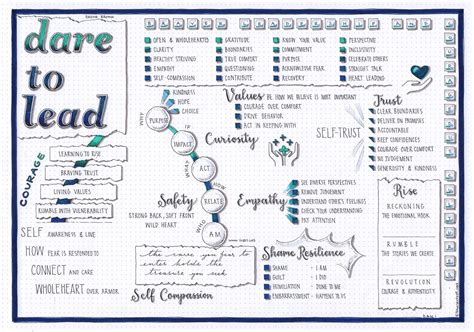 dare
to
lead
COURAGE
LEARNING TO RISE
BRAVING TRUST
LIVING VALUES
RUMBLE WITH VULNERABILITY
SELF AWARENESS & LOVE
HOW FEAR IS RESPONDED TO
CONNECT AND CARE
WHOLEHEART OVER ARMOR
OPEN & WHOLEHEARTED
CLARITY
HEALTHY STRIVING
EMPATHY
SELF COMPASSION
GRATITUDE
BOUNDARIES
TRUE COMFORT
QUESTIONING
CONTRIBUTIONS
KNOW YOUR VALUE
COMMITMENT
PURPOSE
ACKNOWLEDGE FEAR
RECOGNITION
PERSPECTIVE
INCLUSIVITY
CELEBRATE OTHERS
STRAIGHT TALK
HEART LEADING
KINDNESS
HOPE
CHOICE
PURPOSE
IMPACT
ACT
RELATE
I AM
HOW
WHO
Values BE HOW WE BELIEVE IS MOST IMPORTANT
COURAGE OVER COMFORT
DRIVE BEHAVIOR
ACT IN KEEPING WITH
Curiosity
SELF-TRUST
Trust
CLEAR BOUNDARIES
DELIVER ON PROMISES
ACCOUNTABLE
KEEP CONFIDENCES
COURAGE OVER COMFORT
NO JUDGEMENT
GENEROSITY & EARNING
Safety
STRONG BACK, SOFT FRONT
WILD HEART
Empathy
SEE DIVERSE PERSPECTIVES
REMOVE JUDGEMENT
UNDERSTAND OTHERS' FEELINGS
CHECK YOUR UNDERSTANDING
PAY ATTENTION
Rise
RECKONING
THE EMOTIONAL HOOK
RUMBLE
THE STORIES WE CREATE
REVOLUTION
COURAGE & AUTHENTICITY
the cave you fear to
enter holds the
treasure you seek
Self Compassion
Shame Resilience
SHAME : I AM
GUILT : I DID
HUMILIATION : I'M DEMEANED
EMBARRASSMENT : HAPPENS TO US